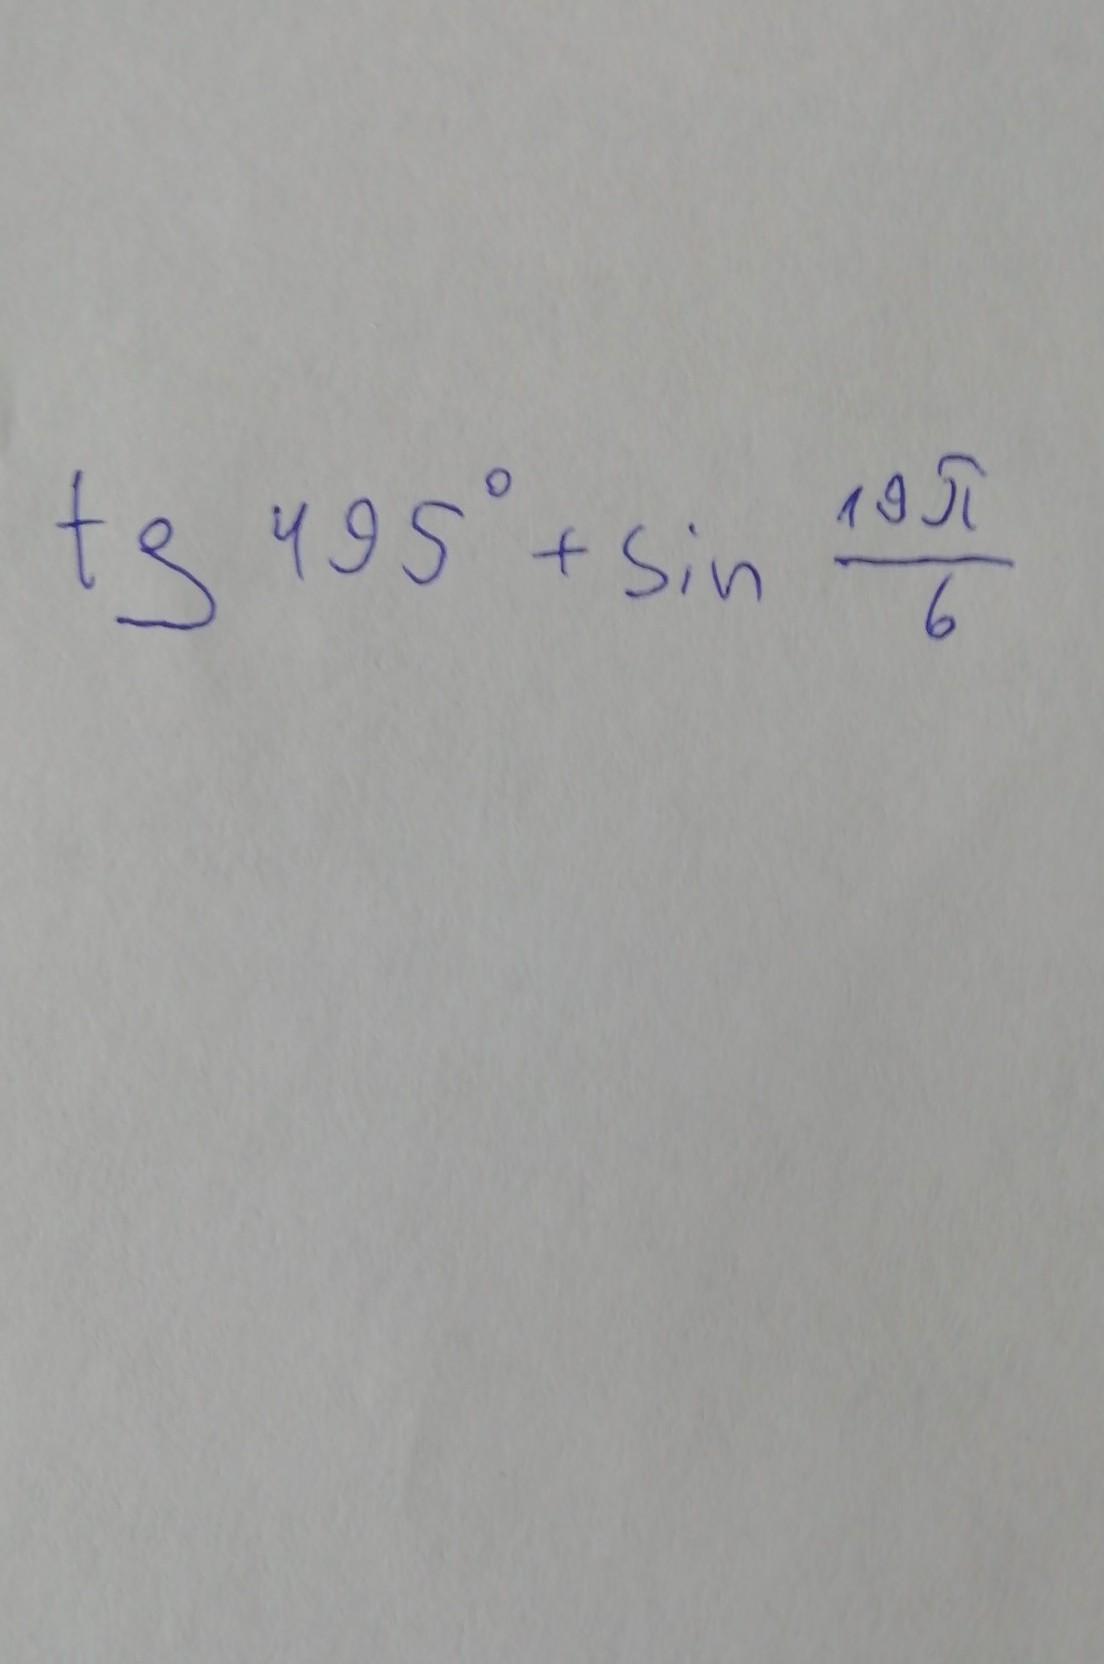 tg 495° + sin 19π/6